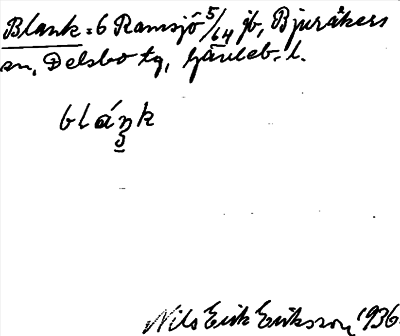 Blank = 6 Ramsjö 5/64 jb, Bjuråkers
sn, Delsbo tg, Gävleb. l.
blánk
5
Nils Erik Eriksson, 1936